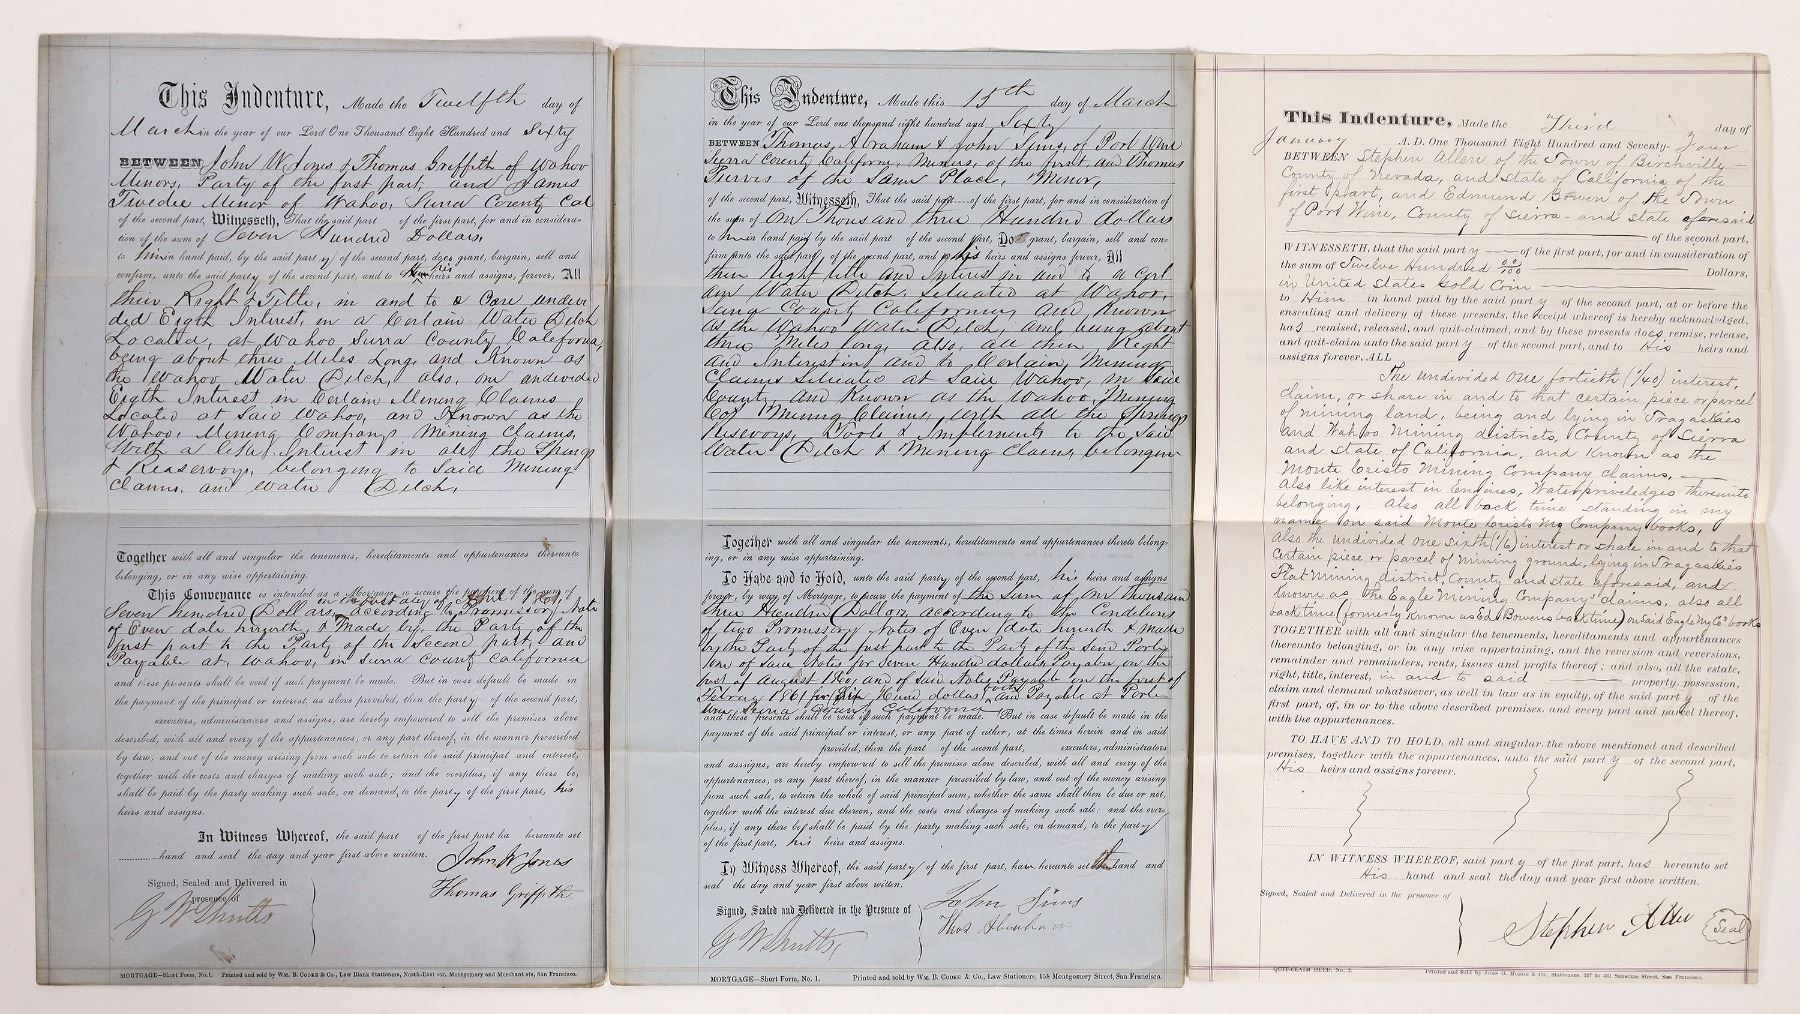 This Indenture, Made the Twelfth day of
March in the year of our Lord One Thousand Eight Hundred and Sixty
BETWEEN John W Jones & Thomas Griffith of Wahoo
Minors, Party of the first part, and James
Twedie Minor of Wahoo, Sierra County Cal
of the second part, Witnesseth, That the said part of the first part, for and in considera-
tion of the sum of Seven Hundred Dollars,
to him in hand paid, by the said party of the second part, does grant, bargain, sell and
confirm, unto the said party of the second part, and to his heirs and assigns, forever, All
their Right & Title, in and to a
Eigth Interest, in a Certain Water Ditch
Located, at Wahoo Sierra County, California,
being about three Miles Long, and Known as
the Wahoo Water Ditch, also, one undevided
Eigth Interest in Certain Mining Claims
Located at Said Wahoo, and Known as the
Wahoo, Mining Companys Mining Claims,
With a like Interest in all the Springs
& Reaservoys, belonging to Said Mining
Claims, and water Ditch,
Together with all and singular the tenements, hereditaments and appurtenances thereunto
belonging, or in any wise appertaining.
This Conveyance is intended as a Mortgage, to secure the payment of the sum of
on the first day of
Seven hundred Dollars, according to Promissory Note
of Even date herewith, & Made by the Party of the
first part to the Party of the Second part, and
Payable at, Wahoo, in Sierra County California
and these presents shall be void if such payment be made. But in case default be made in
the payment of the principal or interest, as above provided, then the party of the second part,
executors, administrators and assigns, are hereby empowered to sell the premises above
described, with all and every of the appurtenances, or any part thereof, in the manner prescribed
by law, and out of the money arising from such sale to retain the said principal and interest,
together with the costs and charges of making such sale; and the overplus, if any there be,
shall be paid by the party making such sale, on demand, to the party of the first part, his
heirs and assigns.
In Witness Whereof, the said part of the first part ha hereunto set
hand and seal the day and year first above written.
John W Jones
Thomas Griffith
Signed, Sealed and Delivered in
presence of
G W Shutts
MORTGAGE—Short Form, No. 1. Printed and sold by WM. B. COOKE & CO., Law Blank Stationers, North-East cor. Montgomery and Merchant sts, San Francisco.
This Indenture, Made this 15th day of March
in the year of our Lord one thousand eight hundred and Sixty
BETWEEN Thomas, Abraham & John Sims, of Port Wine
Sierra County California, Minors, of the first, and Thomas
Purvis of the Same Place, Minor,
of the second part, Witnesseth, That the said part of the first part, for and in consideration of
the sum of One Thousand three Hundred dollars
to him in hand paid by the said part of the second part, Do grant, bargain, sell and con-
firm unto the said party of the second part, and his heirs and assigns forever, All
their Right title and Interest in and to a Cert
ain Water Ditch, Situated at Wahoo,
County California, and Known
as the Wahoo Water Ditch, and being about
three Miles long, also, all their Right
and Interest in and to Certain Mining
Claims Situated at Said Wahoo, in Said
County, and Known as the Wahoo, Mining
Cos Mining Claims, With all the Springs
Resevoys, Tools & Implements to the Said
Water Ditch & Mining Claims, belonging
Together with all and singular the tenements, hereditaments and appurtenances thereto belong-
ing, or in any wise appertaining.
To Have and to Hold, unto the said party of the second part, his heirs and assigns
forever, by way of Mortgage, to secure the payment of the Sum of One Thousand
three Hundred Dollars, according to the Conditions
of two Promissory Notes of Even date herewith & made
by the Party of the first part to the Party of the Second Part,
one of Said Notes for Seven Hundred dollars Payable on the
first of August 1860, and of Said Note Payable on the first of
February 1861 for Six Hund dollars, and Payable at Port
Wine, Sierra County California
and these presents shall be void if such payment be made. But in case default be made in the
payment of the said principal or interest, or any part of either, at the times herein and in said
provided, then the part of the second part, executors, administrators
and assigns, are hereby empowered to sell the premises above described, with all and every of the
appurtenances, or any part thereof, in the manner prescribed by law, and out of the money arising
from such sale, to retain the whole of said principal sum, whether the same shall then be due or not,
together with the interest due thereon, and the costs and charges of making such sale: and the over-
plus, if any there be, shall be paid by the party making such sale, on demand, to the party
of the first part, his heirs and assigns.
In Witness Whereof, the said party of the first part, have hereunto set hand and
seal the day and year first above written.
Signed, Sealed and Delivered in the Presence of
John Sims
Thos Abraham
G W Shutts,
MORTGAGE—Short Form, No. 1. Printed and sold by WM. B. COOKE & CO., Law Stationers, 158 Montgomery Street, San Francisco.
This Indenture, Made the Third day of
January A. D. One Thousand Eight Hundred and Seventy-Four
BETWEEN Stephen Allen of the Town of Birchville,
County of Nevada, and State of California of the
first part, and Edmund Bowen of the Town
of Port Wine, County of Sierra and State aforesaid
of the second part,
WITNESSETH, that the said party of the first part, for and in consideration of
the sum of Twelve Hundred 00/100 Dollars,
in United States Gold Coin
to Him in hand paid by the said party of the second part, at or before the
ensealing and delivery of these presents, the receipt whereof is hereby acknowledged,
has remised, released, and quit-claimed, and by these presents does remise, release,
and quit-claim unto the said party of the second part, and to His heirs and
assigns forever, ALL
The undivided one fortieth (1/40) interest,
claim, or share in and to that certain piece or parcel
of mining land, being and lying in Fragaskies
and Wahoo Mining districts, County of Sierra
and State of California, and known as the
Monte Cristo Mining Company claims,
Also like interest in Engines, Water priveledges thereunto
belonging, Also all back time standing in my
name on said Monte Cristo Mg Company books,
Also the undivided one sixth (1/6) interest or share in and to that
certain piece or parcel of mining ground, lying in Fragaskies
Flat Mining district, County and State aforesaid, and
known as the Eagle Mining Company claims, also all
back time (formerly known as Ed Bowens back time) on said Eagle Mg Cos books
TOGETHER with all and singular the tenements, hereditaments and appurtenances
thereunto belonging, or in any wise appertaining, and the reversion and reversions,
remainder and remainders, rents, issues and profits thereof; and also, all the estate,
right, title, interest, in and to said property, possession,
claim and demand whatsoever, as well in law as in equity, of the said party of the
first part, of, in or to the above described premises, and every part and parcel thereof,
with the appurtenances.
TO HAVE AND TO HOLD, all and singular, the above mentioned and described
premises, together with the appurtenances, unto the said party of the second part,
His heirs and assigns forever.
IN WITNESS WHEREOF, said party of the first part, has hereunto set
His hand and seal the day and year first above written.
Signed, Sealed and Delivered in the presence of
Stephen Allen Seal
QUIT-CLAIM DEED, No. 3. Printed and Sold by JOHN G. HODGE & CO., Stationers, 327 to 331 Sansome Street, San Francisco.